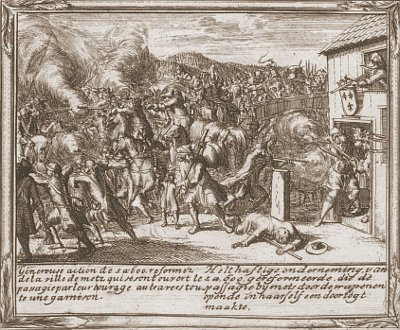 Génereuse action de reformez
de la ville de metz qui se sont ouvert le
passage par leur courage au travers tou
te une garnison.
Helthaftige onderneming, van
gereformeerde die de
passagie bij mets door de wapenen
opende in haar self een doortogt
maakte.